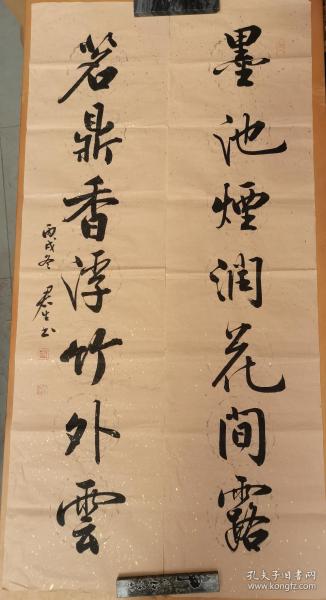 墨池煙潤花間露
茗鼎香浮竹外雲
丙戌冬 君生书
孔夫子旧书网
www.kongfz.com